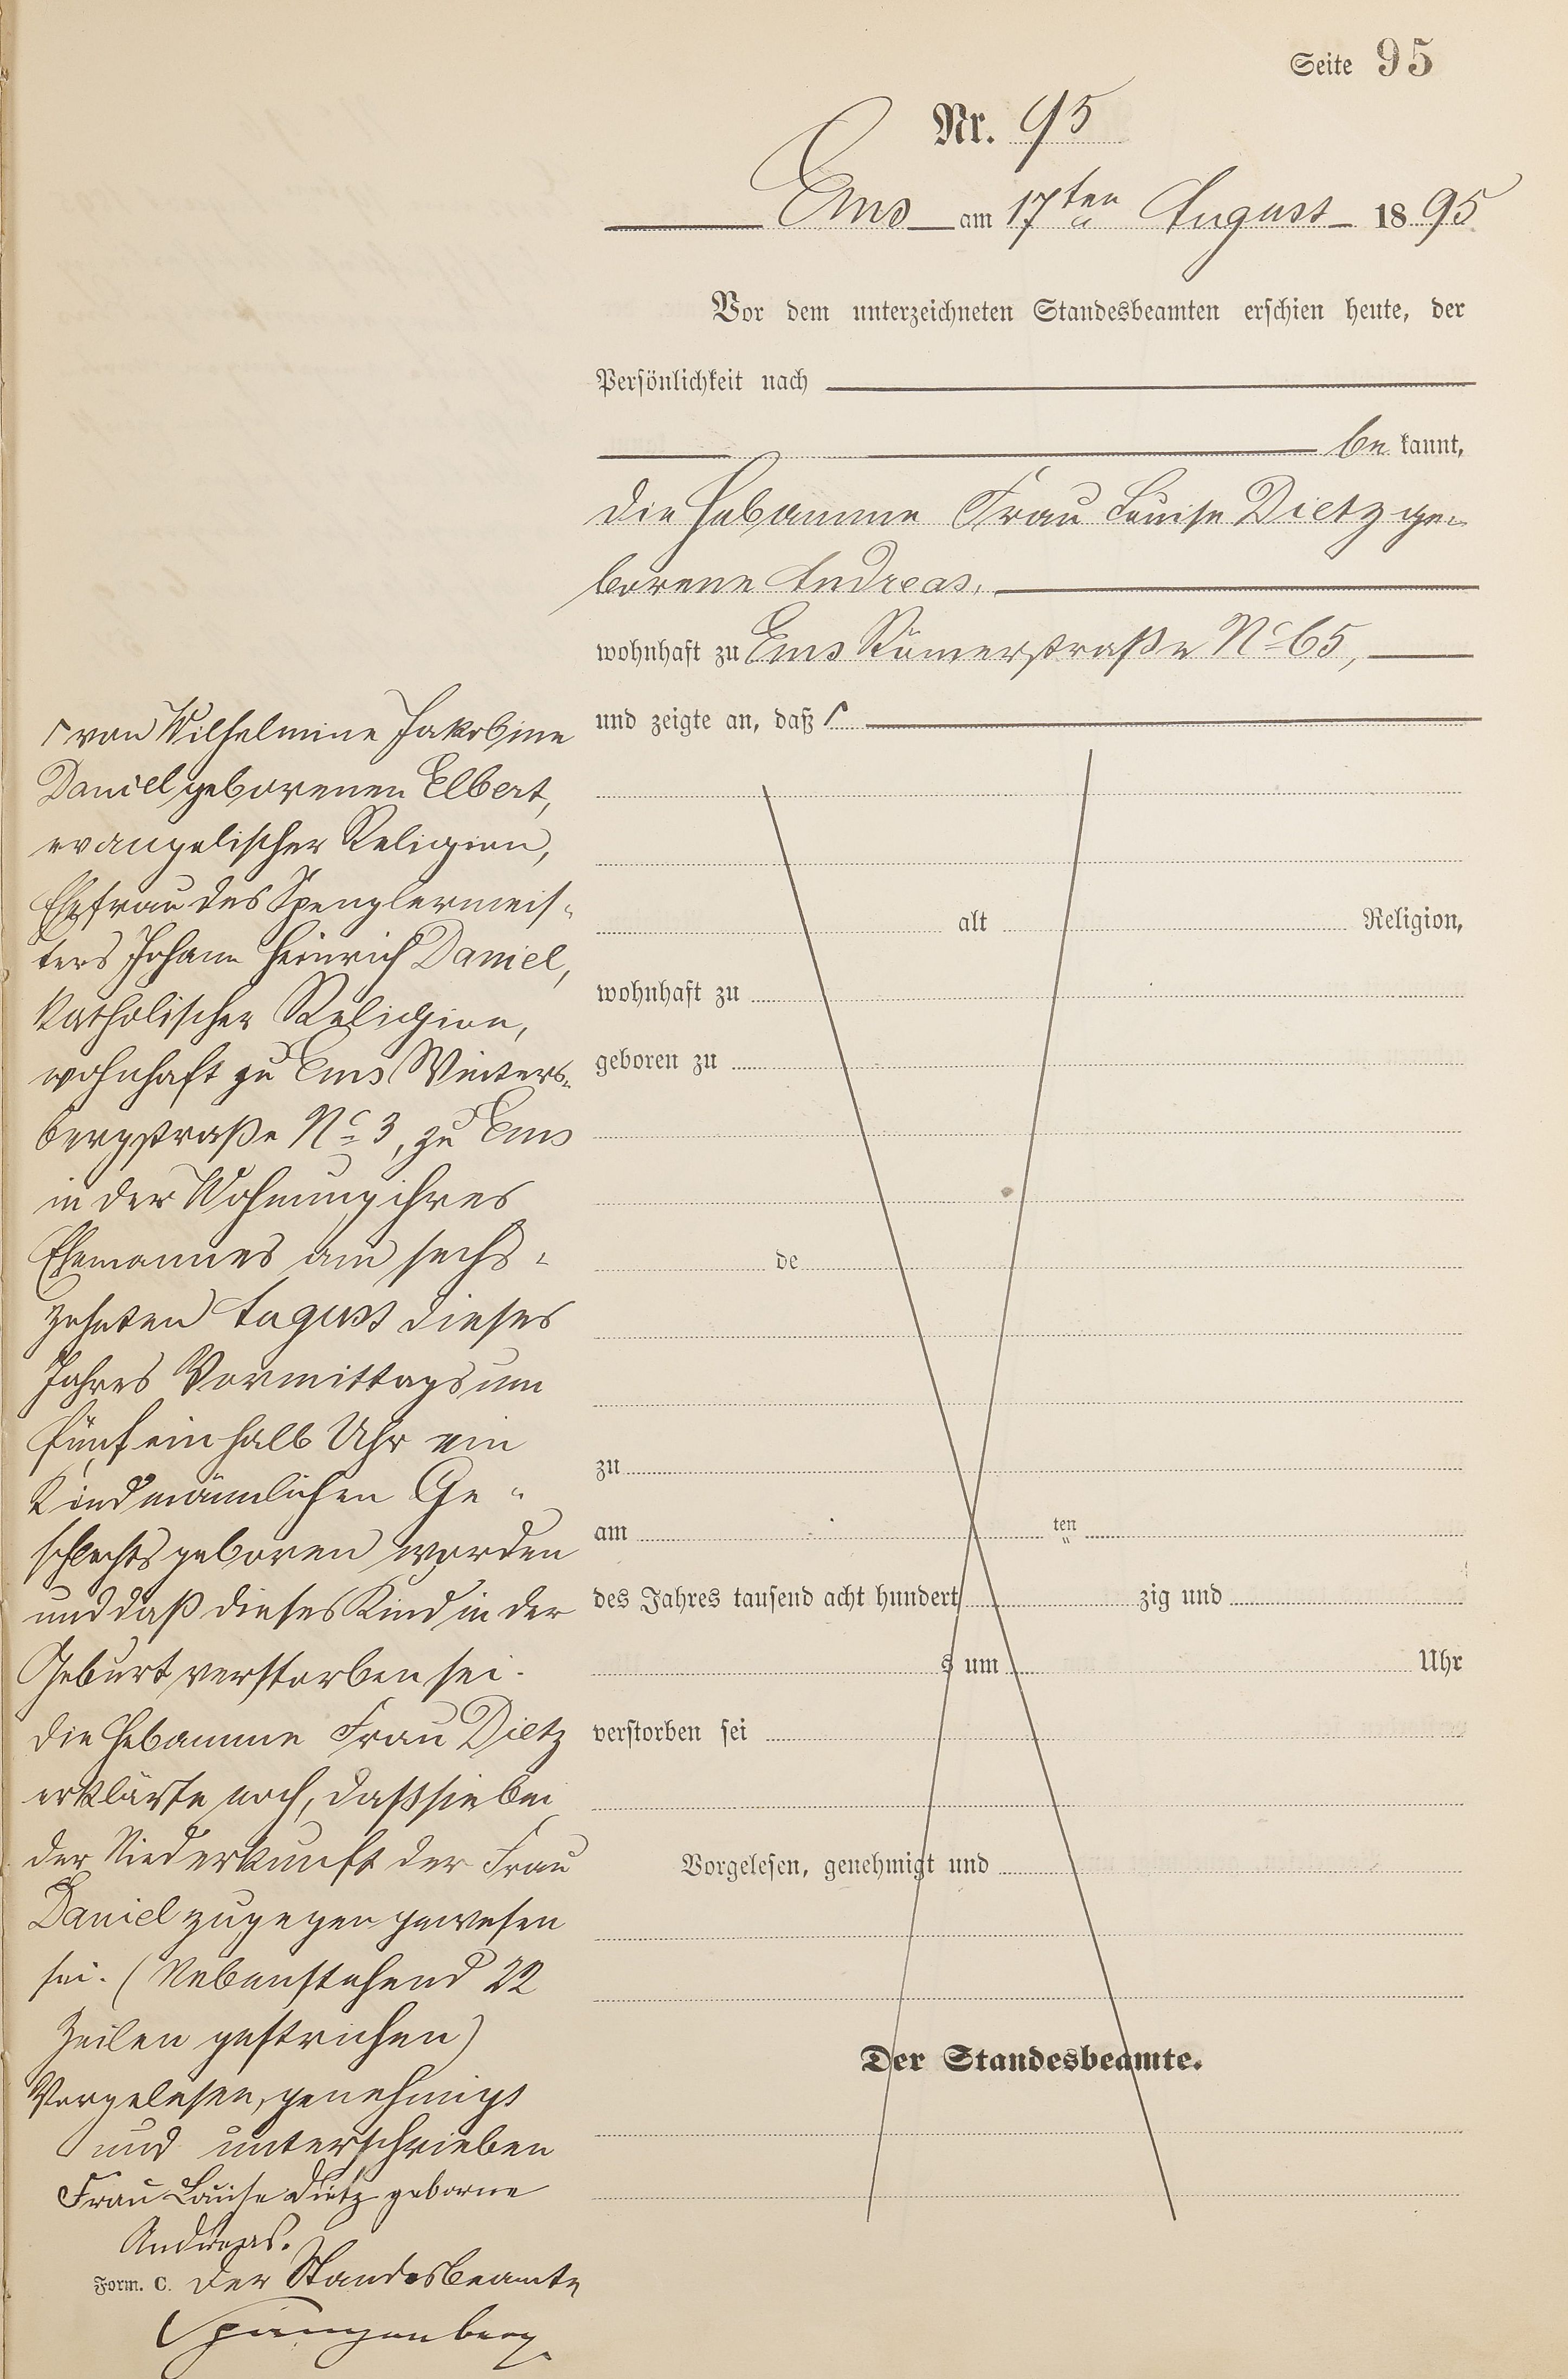 Seite 95
Nr. 95
Ems am 17ten August 1895
Vor dem unterzeichneten Standesbeamten erschien heute, der
Persönlichkeit nach
be kannt,
die Hebamme Frau Louise Dietz ge-
borene Andreas,
wohnhaft zu Ems Römerstraße No 65,
und zeigte an, daß ſ
alt Religion,
wohnhaft zu
geboren zu
de
zu
am ten
des Jahres tausend acht hundert zig und
s um Uhr
verstorben sei
Vorgelesen, genehmigt und
Der Standesbeamte.
ſ von Wilhelmine Jakobine
Daniel geborenen Elbert,
evangelischer Religion,
Ehefrau des Spenglermeis-
ters Johann Heinrich Daniel,
katholischer Religion,
wohnhaft zu Ems Winters-
bergstraße No 3, zu Ems
in der Wohnung ihres
Ehemannes am sechs-
zehnten August dieses
Jahres Vormittags um
fünf ein halb Uhr ein
Kind männlichen Ge-
schlechts geboren worden
und daß dieses Kind in der
Geburt verstorben sei.
die Hebamme Frau Dietz
erklärte noch, daß sie bei
der Niederkunft der Frau
Daniel zugegen gewesen
sei. (Nebenstehend 22
Zeilen gestrichen)
Vorgelesen, genehmigt
und unterschrieben
Frau Louise Dietz geborne
Andreas.
Form. C. Der Standesbeamte
Spangenberg